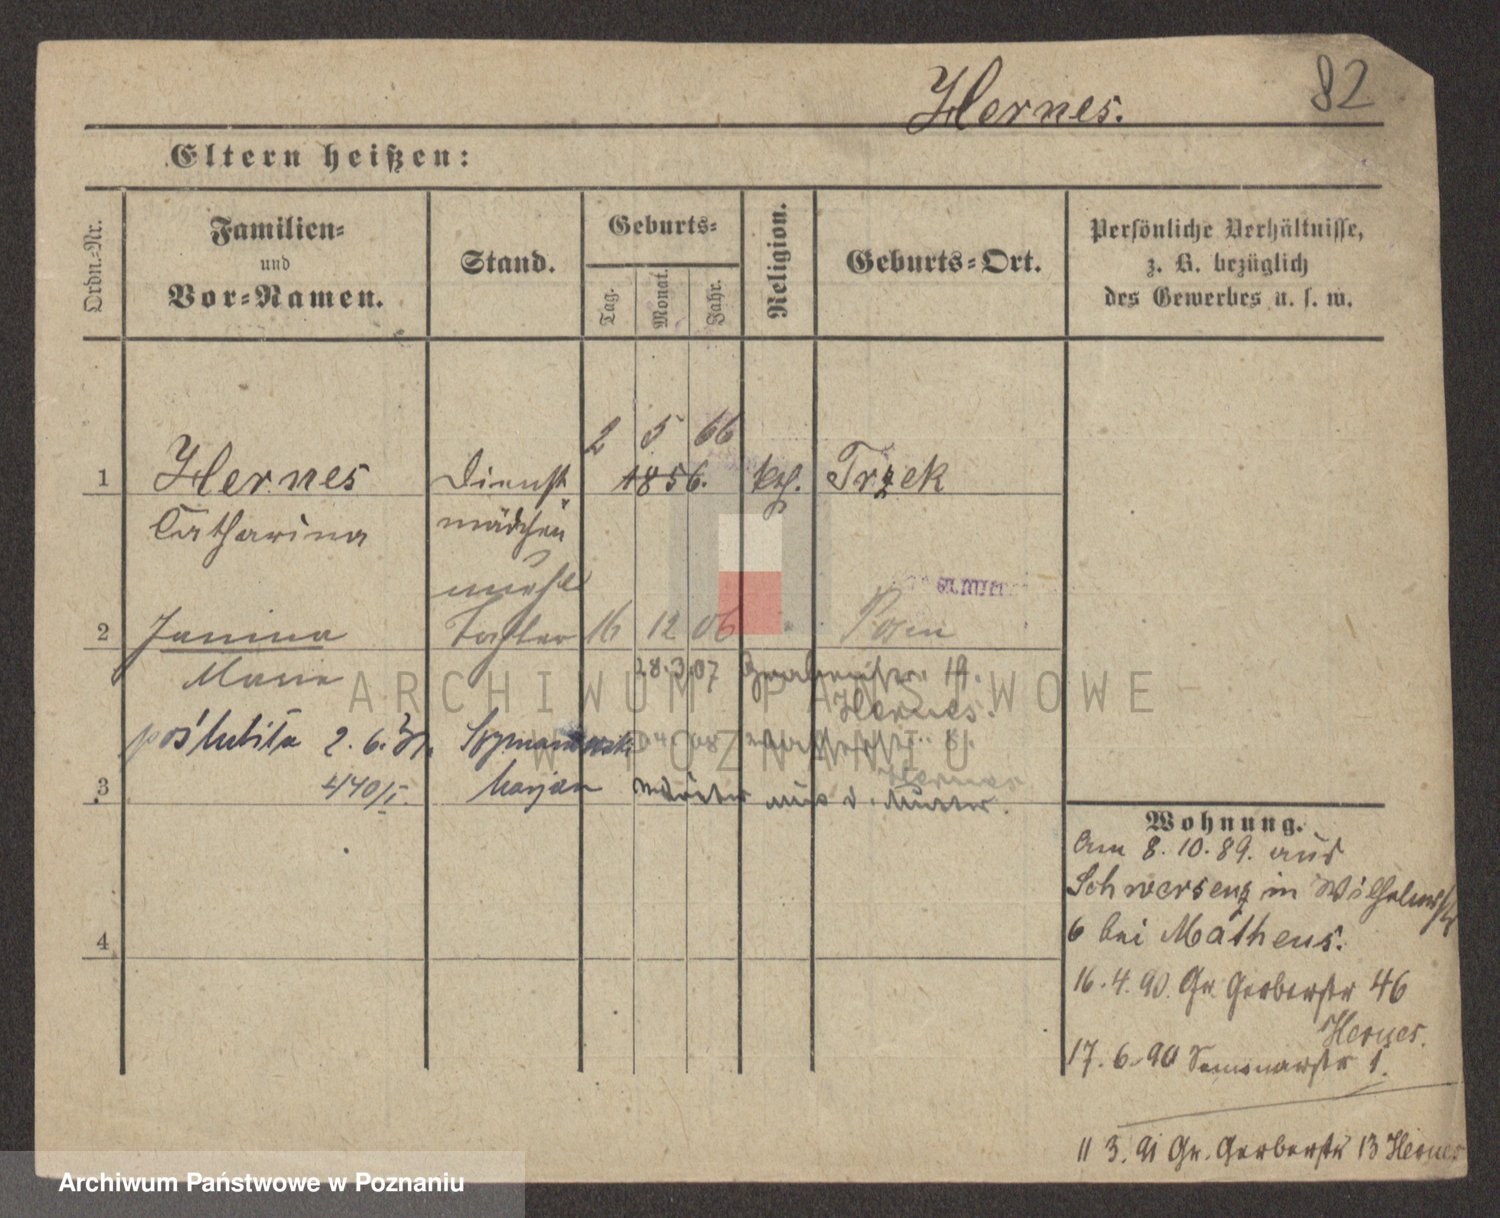 Hernes. 82
Eltern heißen:
Ordn.-Nr.
Familien-
und
Vor-Namen.
Stand.
Geburts-
Tag.
Monat.
Jahr.
Religion.
Geburts-Ort.
Persönliche Verhältnisse,
z. B. bezüglich
des Gewerbes u. s. w.
2 5 66
1 Hernes Dienst 1856. kth. Trzek
Catharina mädchen
2 Janina Tochter 16 12 06 Posen
Marie 28.3.07 19.
Hernes.
poślubiła 2.6. Szymanowski 04. 08 8.
Hernes
3 440/I. Marjan aus d. Mutter.
4
Wohnung.
Am 8.10.89. aus
Schwersenz in Wilhelmstr
6 bei Matheus.
16.4.90. Gr. Gerberstr 46
Hernes.
17.6.90 Seminarstr 1.
11 3. 91 Gr. Gerberstr 13 Hernes
ARCHIWUM PAŃSTWOWE
W POZNANIU
Archiwum Państwowe w Poznaniu